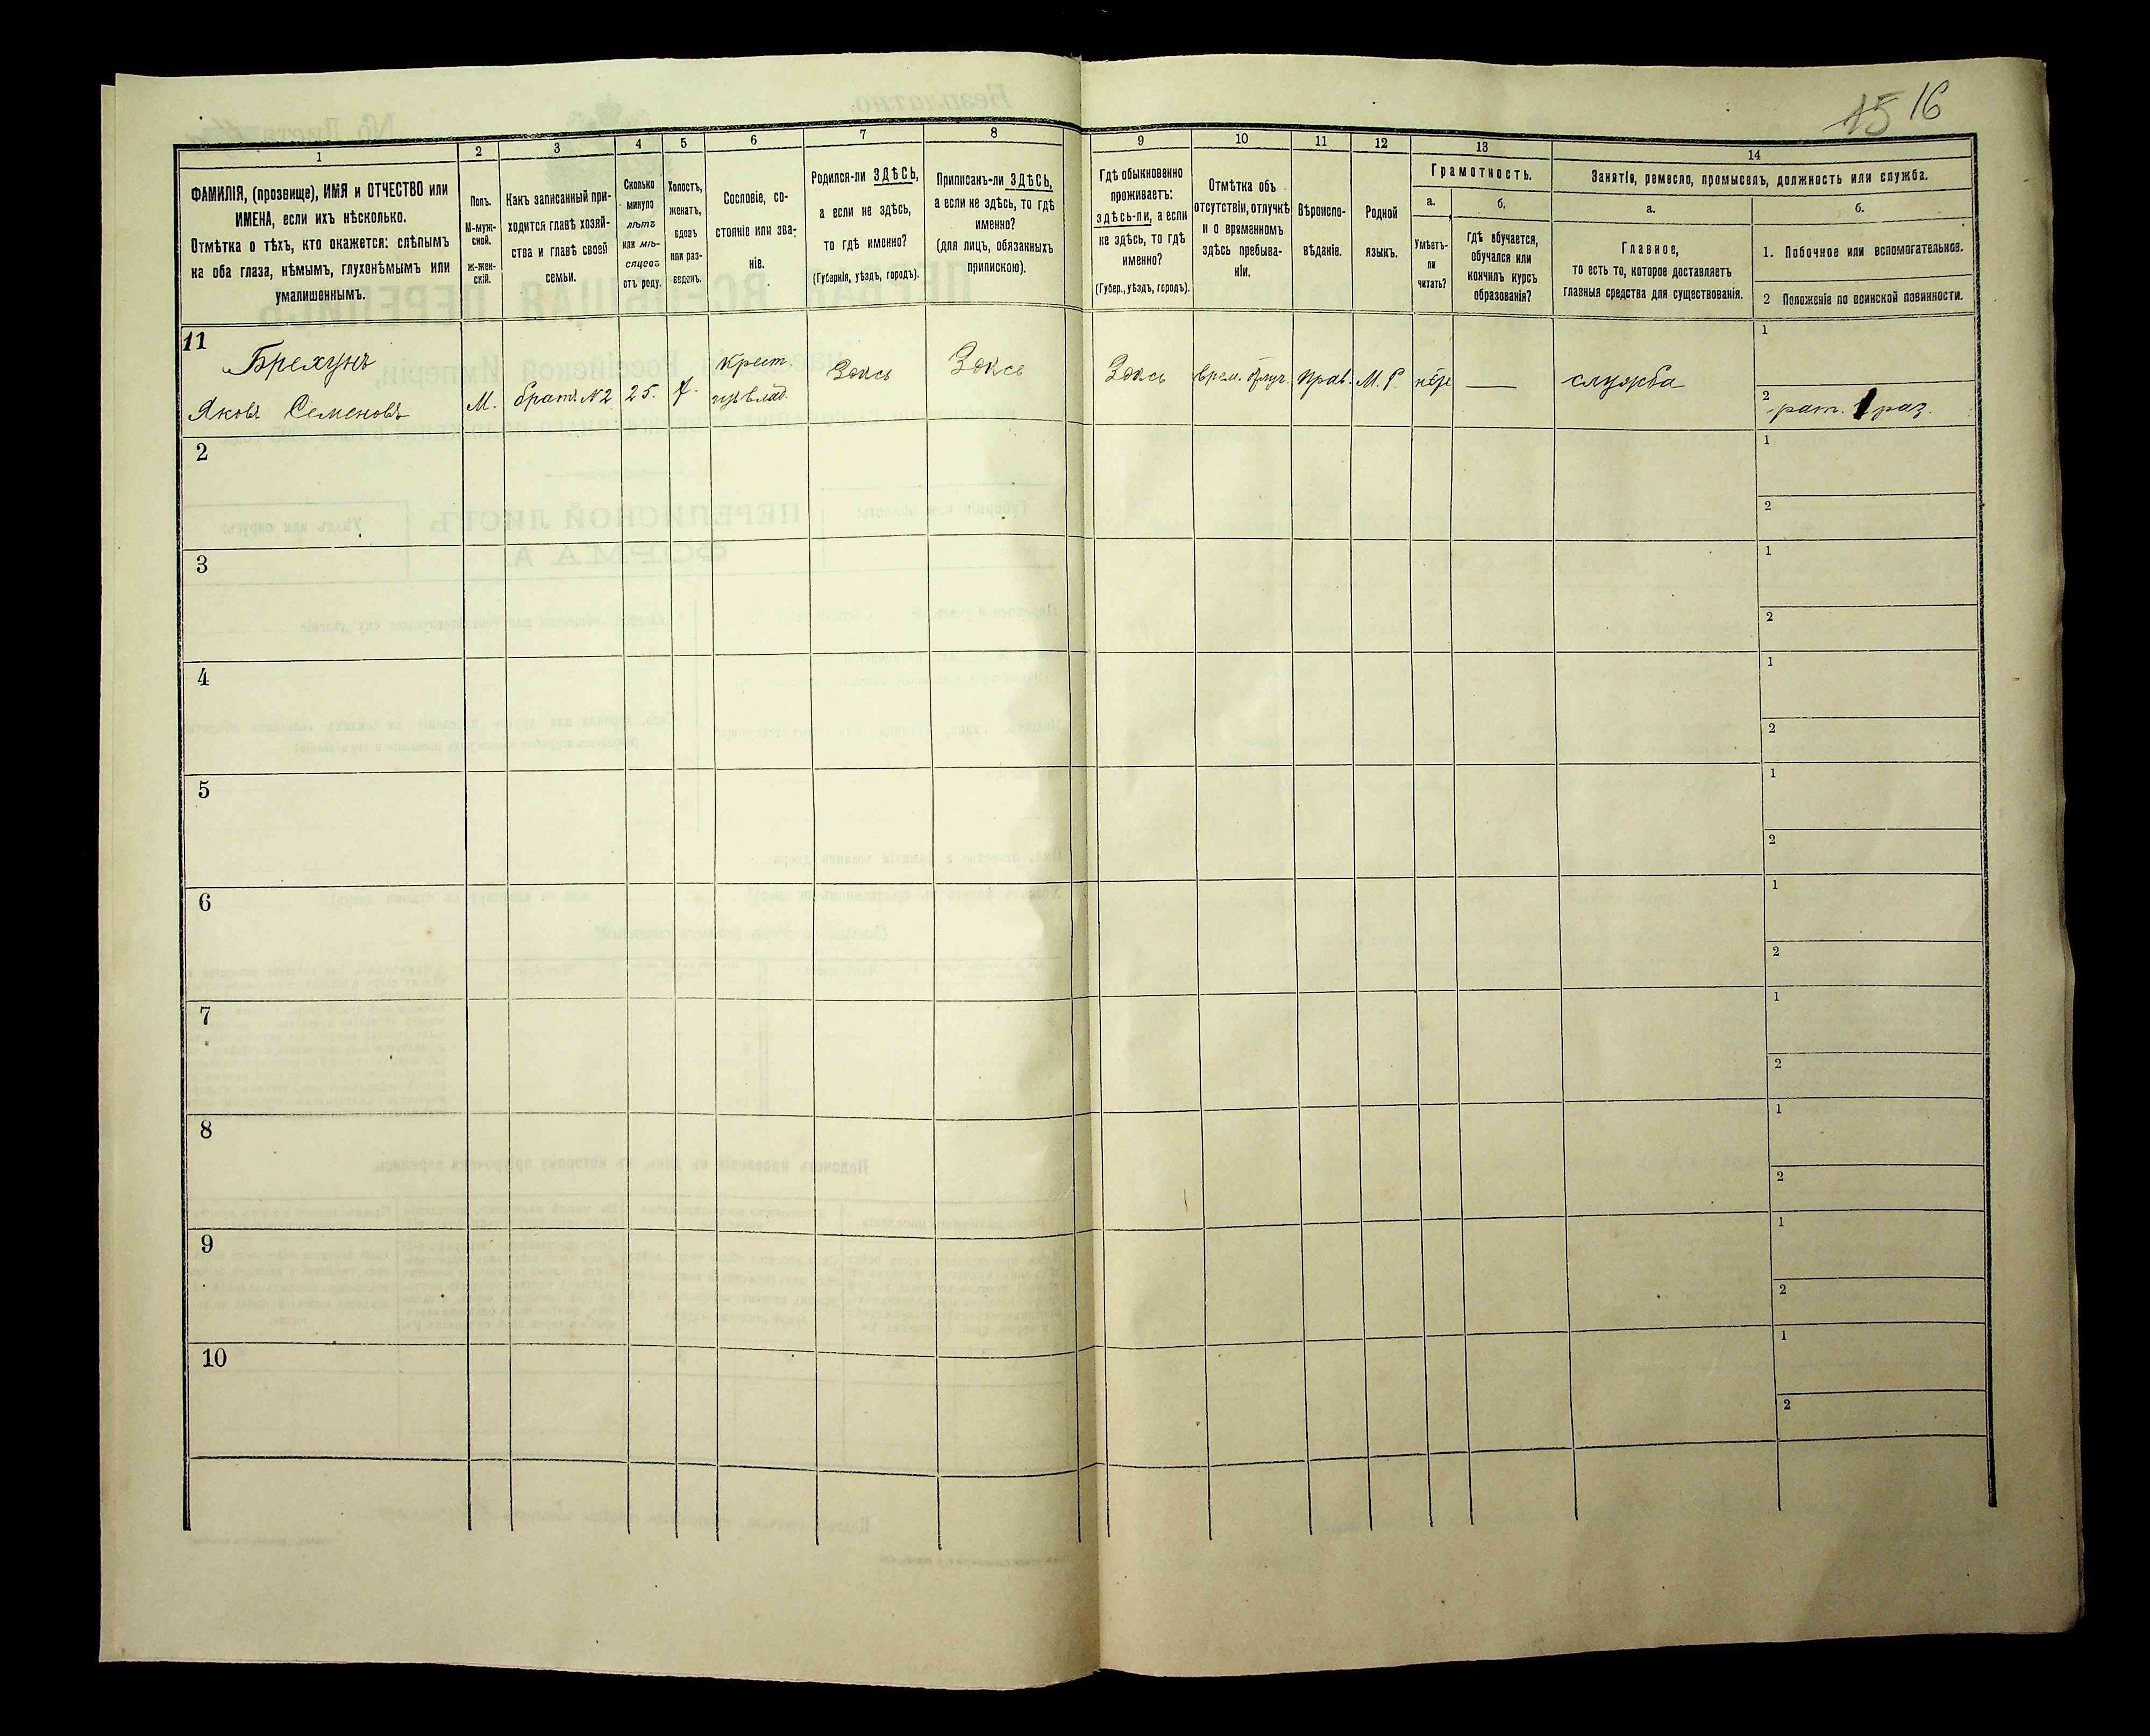 15 16
1 2 3 4 5 6 7 8 9 10 11 12 13 14
ФАМИЛІЯ, (прозвище), ИМЯ и ОТЧЕСТВО или
ИМЕНА, если ихъ нѣсколько.
Отмѣтка о тѣхъ, кто окажется: слѣпымъ
на оба глаза, нѣмымъ, глухонѣмымъ или
умалишеннымъ.
Полъ.
М-муж-
ской.
ж-жен-
скій.
Какъ записанный при-
ходится главѣ хозяй-
ства и главѣ своей
семьи.
Сколько
минуло
лѣтъ
или мѣ-
сяцевъ
отъ роду.
Холостъ,
женатъ,
вдовъ
или раз-
веденъ.
Сословіе, со-
стояніе или зва-
ніе.
Родился-ли ЗДѢСЬ,
а если не здѣсь,
то гдѣ именно?
(Губернія, уѣздъ, городъ).
Приписанъ-ли ЗДѢСЬ,
а если не здѣсь, то гдѣ
именно?
(для лицъ, обязанныхъ
припискою).
Гдѣ обыкновенно
проживаетъ:
здѣсь-ли, а если
не здѣсь, то гдѣ
именно?
(Губер., уѣздъ, городъ).
Отмѣтка объ
отсутствіи, отлучкѣ
и о временномъ
здѣсь пребыва-
ніи.
Вѣроиспо-
вѣданіе.
Родной
языкъ.
Грамотность.
а.
Умѣетъ-
ли
читать?
б.
Гдѣ обучается,
обучался или
кончилъ курсъ
образованія?
Занятіе, ремесло, промыселъ, должность или служба.
а.
Главное,
то есть то, которое доставляетъ
главныя средства для существованія.
б.
1. Побочное или вспомогательное.
2 Положеніе по воинской повинности.
11
Брехунъ
Яковъ Семеновъ
М.
братъ №2
25.
крест.
Здѣсь
Здѣсь
Здѣсь
врем. отлуч.
прав.
М. Р.
—
служба
1
2
рат. 1 раз.
2
1
2
3
1
2
4
1
2
5
1
2
6
1
2
7
1
2
8
1
2
9
1
2
10
1
2